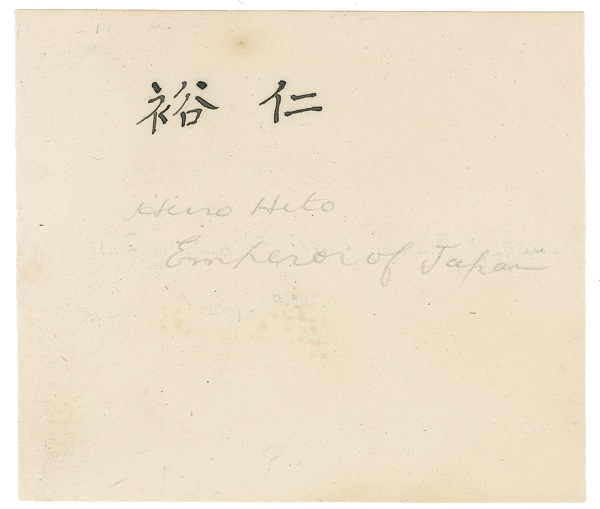 裕仁
Hiro Hito
Emperor of Japan